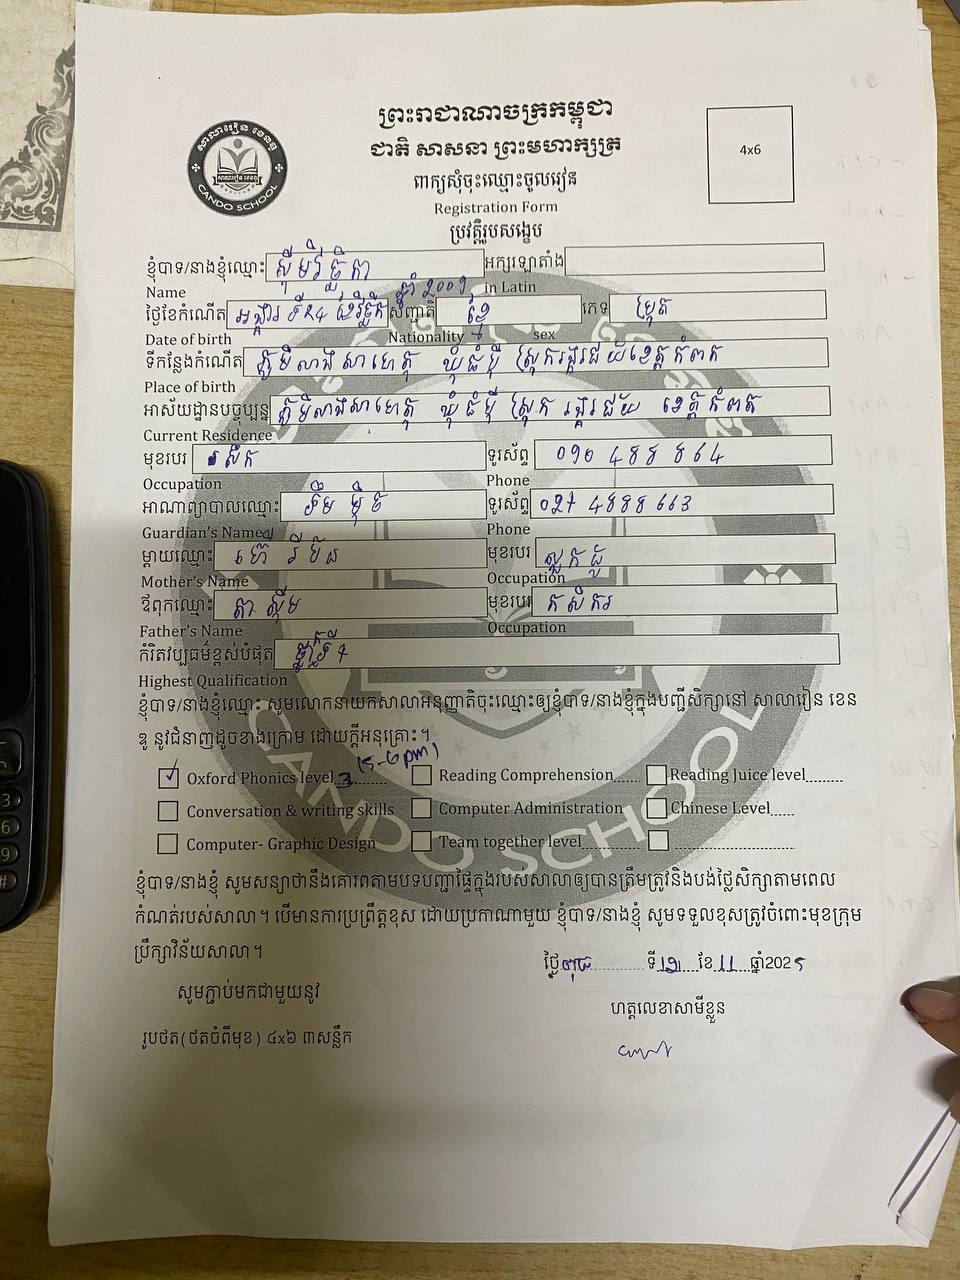 ព្រះរាជាណាចក្រកម្ពុជា
ជាតិ សាសនា ព្រះមហាក្សត្រ
សាលារៀន ខេនឌូ
CANDO SCHOOL
4x6
ពាក្យសុំចុះឈ្មោះចូលរៀន
Registration Form
ប្រវត្តិរូបសង្ខេប
ខ្ញុំបាទ/នាងខ្ញុំឈ្មោះ អក្សរឡាតាំង
Name in Latin
ឆ្នាំ 2009
ថ្ងៃខែកំណើត អង្គារ ទី24 សញ្ជាតិ ខ្មែរ ភេទ
Date of birth Nationality sex
ទីកន្លែងកំណើត ភូមិ ឃុំ ស្រុក ខេត្តកំពត
Place of birth
អាស័យដ្ឋានបច្ចុប្បន្ន ភូមិ ឃុំ ស្រុក ខេត្តកំពត
Current Residence
មុខរបរ សិក ទូរស័ព្ទ 090 488 864
Occupation Phone
អាណាព្យាបាលឈ្មោះ ទូរស័ព្ទ 027 4888 663
Guardian's Name Phone
ម្ដាយឈ្មោះ មុខរបរ
Mother's Name Occupation
ឪពុកឈ្មោះ តា ស៊ីម មុខរបរ កសិករ
Father's Name Occupation
កំរិតវប្បធម៌ខ្ពស់បំផុត
Highest Qualification
ខ្ញុំបាទ/នាងខ្ញុំឈ្មោះ សូមលោកនាយកសាលាអនុញ្ញាតិចុះឈ្មោះឲ្យខ្ញុំបាទ/នាងខ្ញុំក្នុងបញ្ជីសិក្សានៅ សាលារៀន ខេន
ឌូ នូវជំនាញដូចខាងក្រោម ដោយក្ដីអនុគ្រោះ។
(5-6pm)
Oxford Phonics level 3 Reading Comprehension...... Reading Juice level........
Conversation & writing skills Computer Administration Chinese Level......
Computer- Graphic Design Team together level........
ខ្ញុំបាទ/នាងខ្ញុំ សូមសន្យាថានឹងគោរពតាមបទបញ្ជាផ្ទៃក្នុងរបស់សាលាឲ្យបានត្រឹមត្រូវនិងបង់ថ្លៃសិក្សាតាមពេល
កំណត់របស់សាលា។ បើមានការប្រព្រឹត្តខុស ដោយប្រការណាមួយ ខ្ញុំបាទ/នាងខ្ញុំ សូមទទួលខុសត្រូវចំពោះមុខក្រុម
ប្រឹក្សាវិន័យសាលា។
ថ្ងៃ ពុធ ទី 12 ខែ 11 ឆ្នាំ2025
សូមភ្ជាប់មកជាមួយនូវ
ហត្ថលេខាសាមីខ្លួន
រូបថត(ថតចំពីមុខ) ៤x៦ ៣សន្លឹក